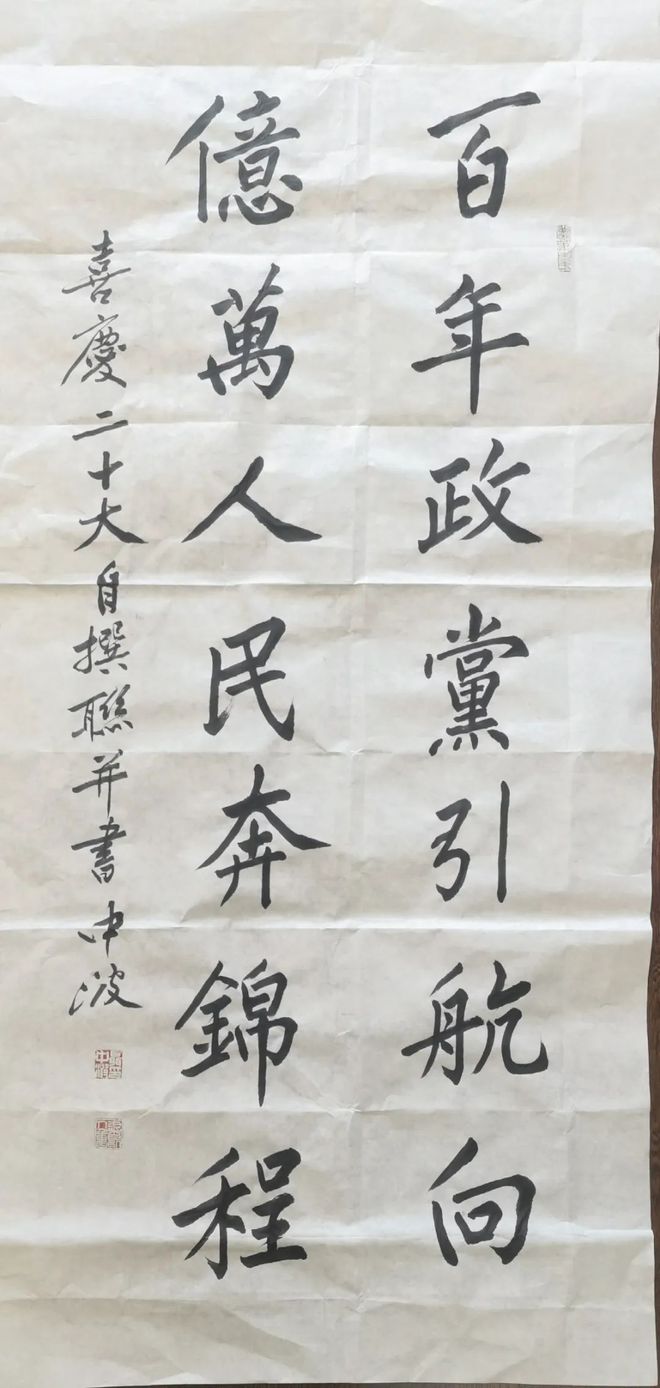 百年政黨引航向
億萬人民奔錦程
喜慶二十大自撰聯并書中波